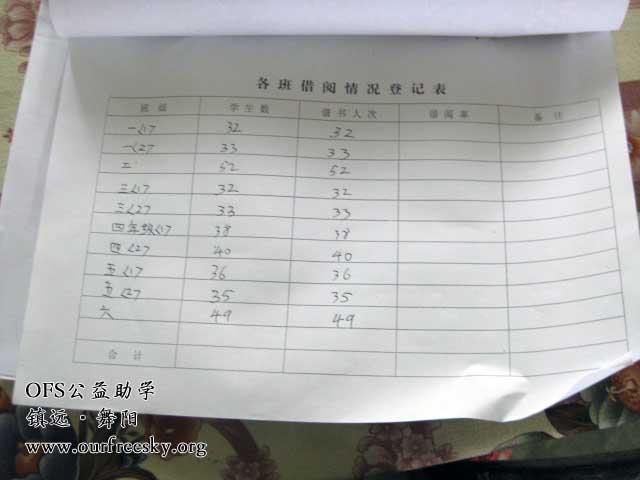 各班借阅情况登记表
班级 学生数 借书人次 借阅率 备注
一<1> 32 32
一<2> 33 33
二 52 52
三<1> 32 32
三<2> 33 33
四年级<1> 38 38
四<2> 40 40
五<1> 36 36
五<2> 35 35
六 49 49
合计
OFS公益助学
镇远·舞阳
www.ourfreesky.org